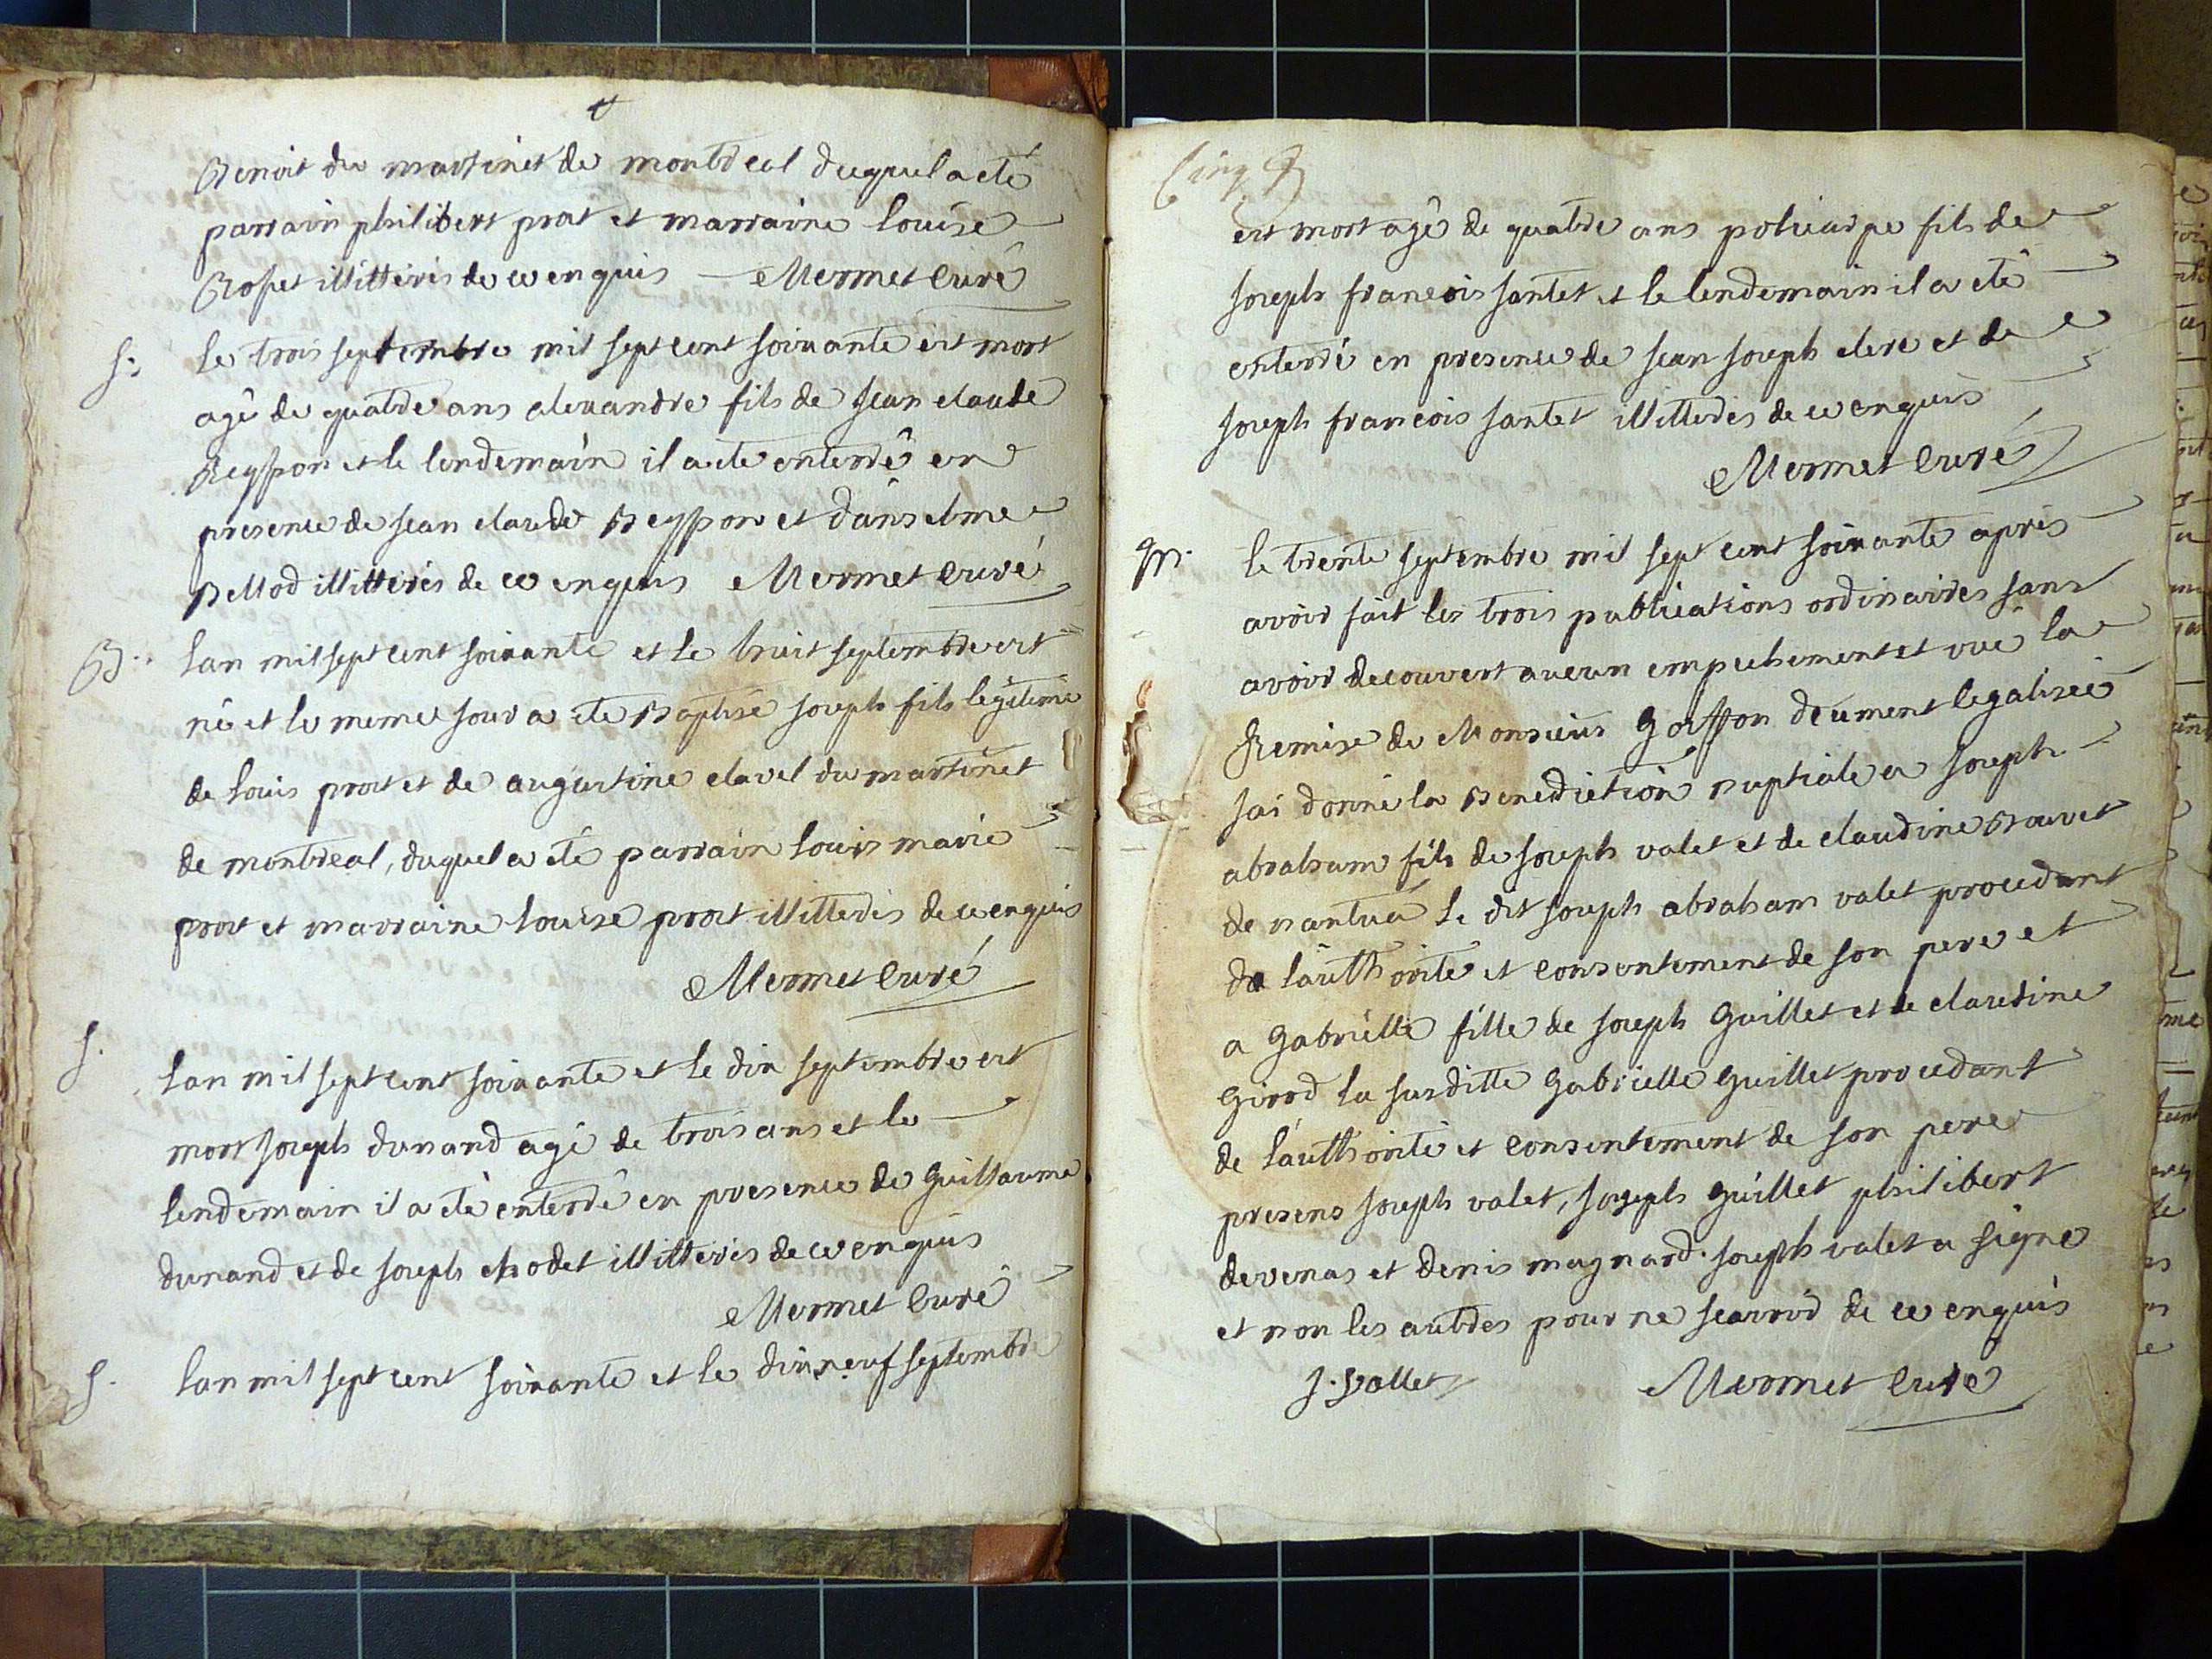 Benoit du martinet de montreal duquel a eté
parrain philibert prat et marraine louise
Rosset illitterés de ce enquis Mermet Curé
S. le trois septembre mil sept cent soixante est mort
agé de quatre ans alexandre fils de Jean claude
Reysson et le lendemain il a eté enterré en
presence de Jean claude Reyssons et d'anselme
Bellod illitterés de ce enquis Mermet Curé
B. lan mil sept cent soixante et le huit septembre est
né et le meme jour a eté Baptisé joseph fils legitime
de louis prat et de augustine clavel du martinet
de montreal, duquel a eté parrain louis marie
prat et marraine louise prat illitterés de ce enquis
Mermet Curé
S. lan mil sept cent soixante et le dix septembre est
mort joseph dunand agé de trois ans et le
lendemain il a eté enterré en presence de Guillaume
dunand et de joseph chodet illitterés de ce enquis
Mermet Curé
S. lan mil sept cent soixante et le dix neuf septembre
Cinq
est mort agé de quatre ans policarpe fils de
joseph francois jantet et le lendemain il a eté
enterré en presence de jean joseph clere et de
joseph francois jantet illitterés de ce enquis
Mermet Curé
M. le trente septembre mil sept cent soixante apres
avoir fait les trois publications ordinaires sans
avoir decouvert aucun empechement et vue la
Remise de Monsieur Goiffon deument legalisée
jai donné la Benediction nuptiale a joseph
abraham fils de joseph valet et de claudine Bouvet
de nantua le dit joseph abraham valet procedant
de lauthorité et consentement de son pere et
a Gabrielle fille de joseph Guillet et de claudine
Girod la susditte Gabrielle Guillet procedant
de l'authorité et consentement de son pere
presens joseph valet, joseph Guillet philibert
devenas et denis magnard. joseph valet a signe
et non les autres pour ne scavoir de ce enquis
J. Vallet Mermet Curé